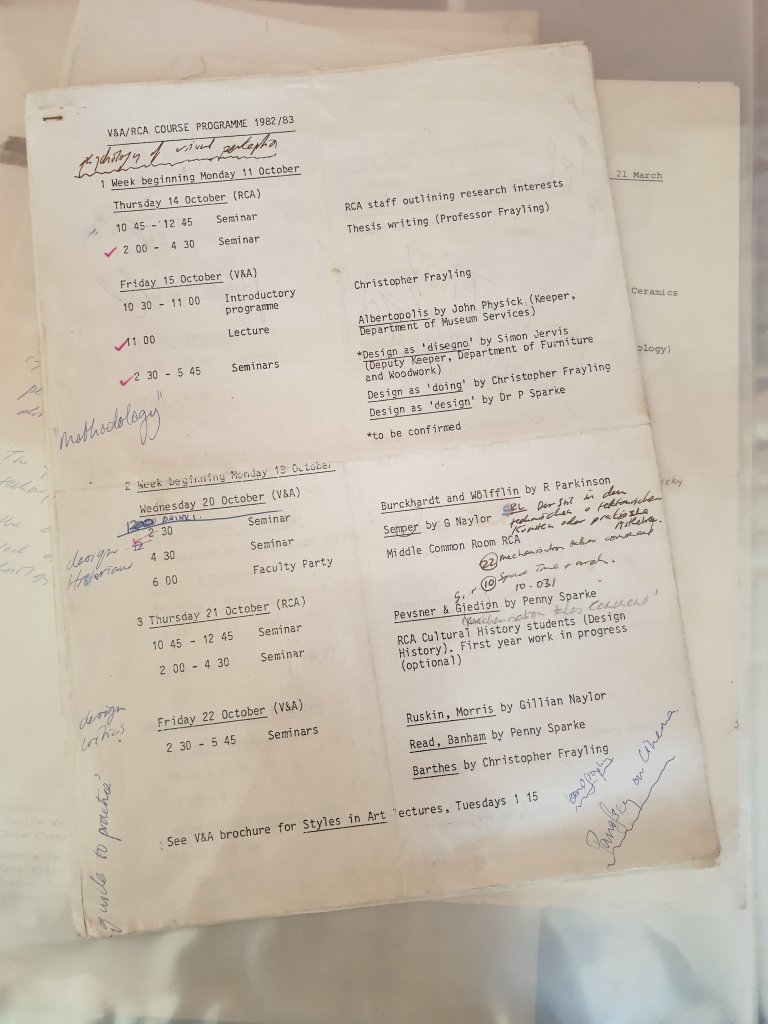 V&A/RCA COURSE PROGRAMME 1982/83
psychology of visual perception
1 Week beginning Monday 11 October
Thursday 14 October (RCA)
10 45 - 12 45 Seminar RCA staff outlining research interests
2 00 - 4 30 Seminar Thesis writing (Professor Frayling)
Friday 15 October (V&A)
10 30 - 11 00 Introductory programme Christopher Frayling
11 00 Lecture Albertopolis by John Physick (Keeper,
Department of Museum Services)
2 30 - 5 45 Seminars *Design as 'disegno' by Simon Jervis
(Deputy Keeper, Department of Furniture
and Woodwork)
Design as 'doing' by Christopher Frayling
Design as 'design' by Dr P Sparke
"Methodology"
*to be confirmed
2 Week beginning Monday 19 October
Wednesday 20 October (V&A)
2 30 Seminar Burckhardt and Wölfflin by R Parkinson
4 30 Seminar Semper by G Naylor
Der Stil in den
technischen + tektonischen
Künsten oder praktische
6 00 Faculty Party Middle Common Room RCA
design
Historian
(22) Mechanisation takes command
(10) Space Time + arch.
10.031
3 Thursday 21 October (RCA)
10 45 - 12 45 Seminar Pevsner & Giedion by Penny Sparke
'Mechanisation takes Command'
2 00 - 4 30 Seminar RCA Cultural History students (Design
History). First year work in progress
(optional)
design
critics
Friday 22 October (V&A)
2 30 - 5 45 Seminars Ruskin, Morris by Gillian Naylor
Read, Banham by Penny Sparke
Barthes by Christopher Frayling
See V&A brochure for Styles in Art lectures, Tuesdays 1 15
'guide to practice'
on cinema
21 March
Ceramics
ology)
icky